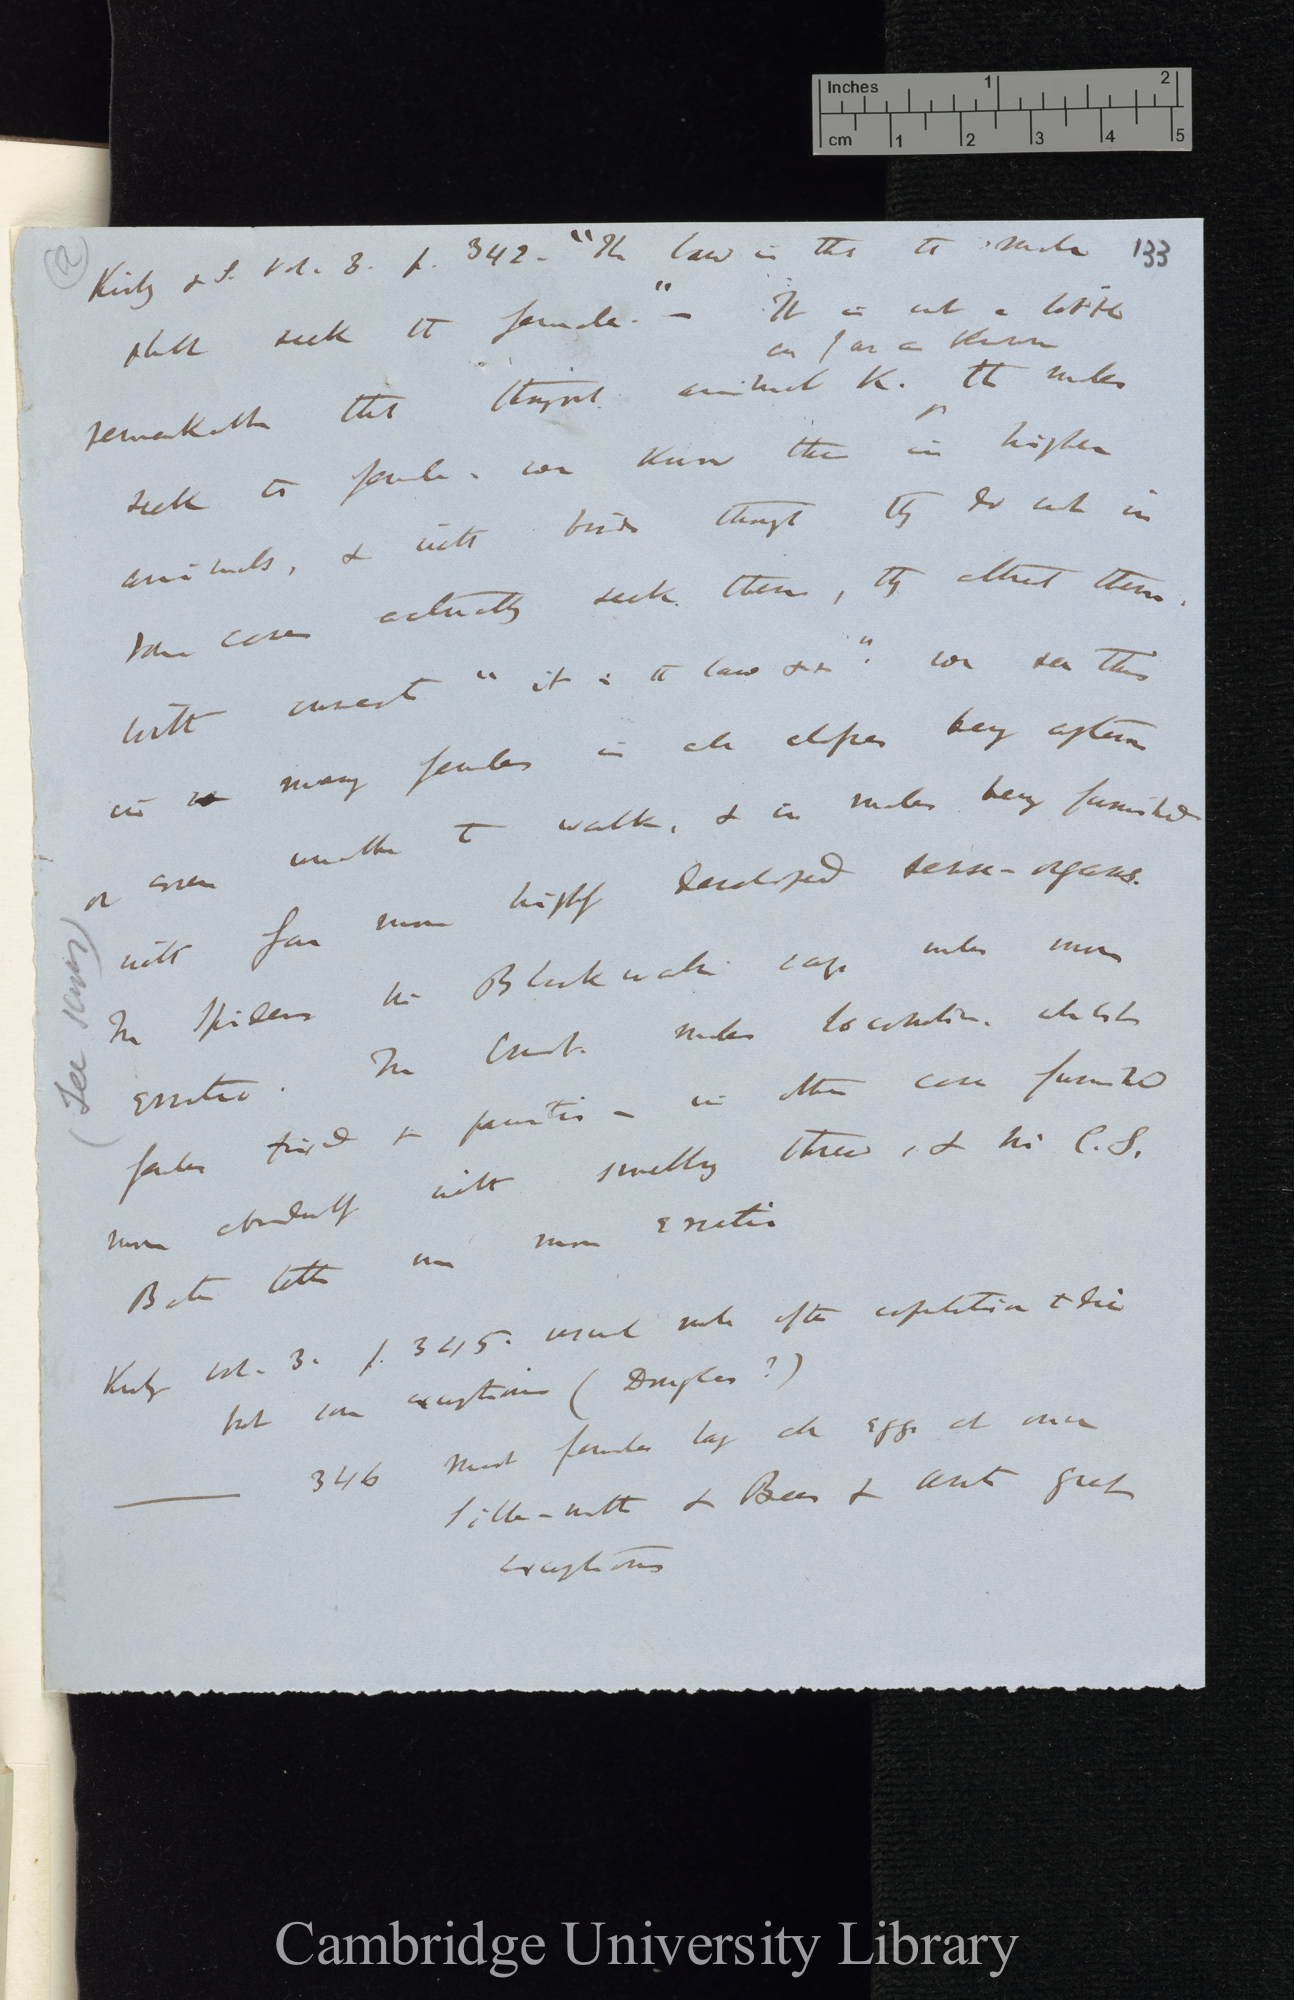 Inches 1 2
cm 1 2 3 4 5
(2)
133
Kirby & S. Vol. 3. p. 342 - "The law is that the male
shall seek the female." — It is not a little
as far as known
remarkable that througout animal K. the males
seek the female. we know this in higher
animals, & with birds though they do not in
some cases actually seek them, they attract them.
With insects "it is the law &c". we see this
in many females in all classes being apterous
or even unable to walk, & in males being furnished
with far more highly developed sense-organs.
In Spiders Mr Blackwall says males more
erratic. In Crust. males locomotive whilst
females fixed & parasitic — in other cases furnished
more abundantly with smelling threads, & Mr C. S.
Bate tells me more erratic
(See Kirby)
Kirby vol. 3. p. 345. usual male after copulation & die
but some exceptions (Douglas?)
——— 346 Most females lay all eggs at once
Silk-moth & Bees & ants great
exceptions
Cambridge University Library